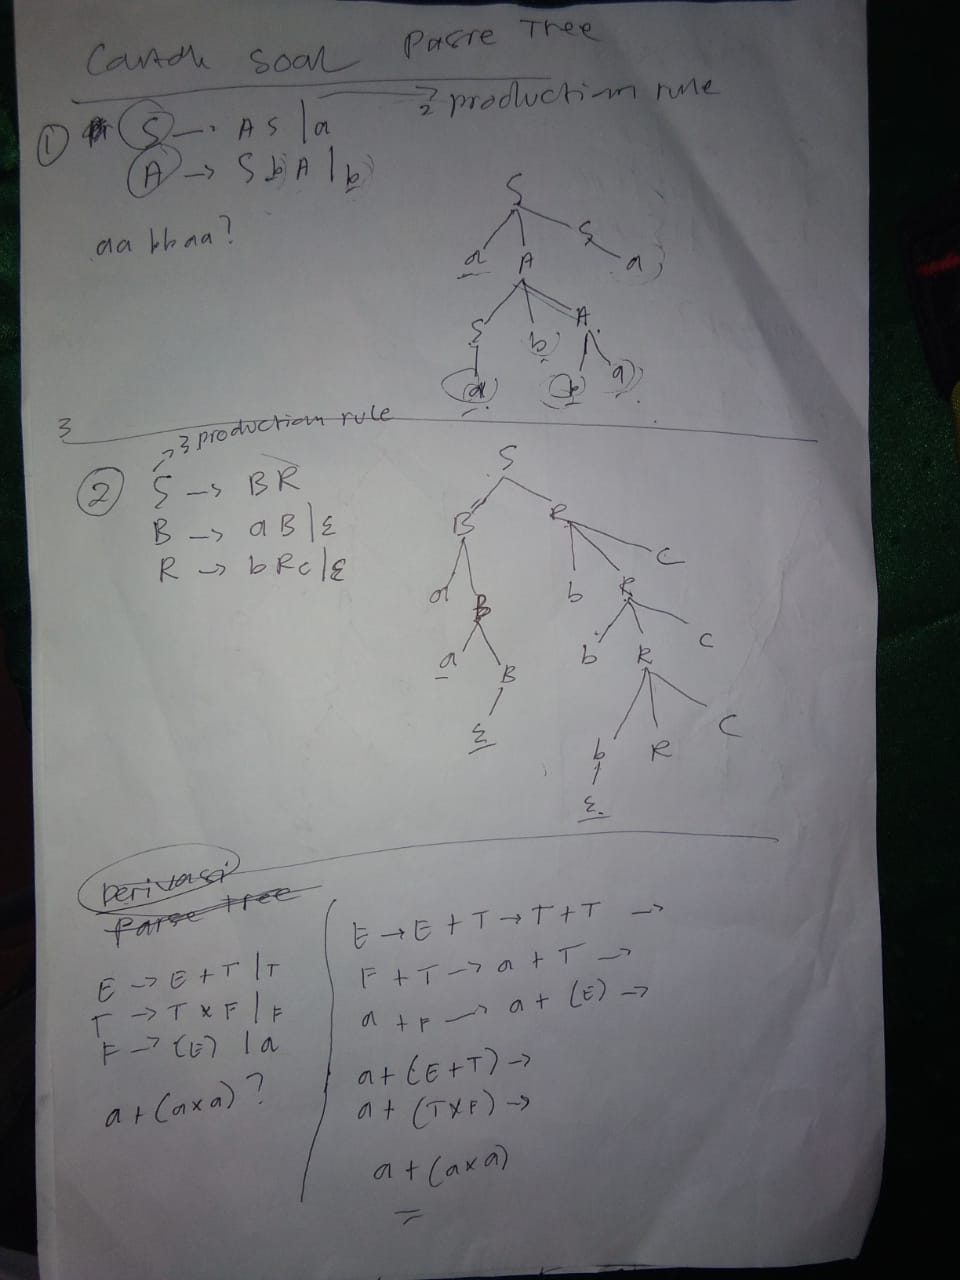 Contoh Soal Pasre Tree
① S → AS | a → 2 production rule
A → SbA | b
aabbaa?
S
a A S
a
S b A
a b a
3
→ 3 production rule
② S → BR
B → aB | ε
R → bRc | ε
S
B R
a B b R C
a B b R C
ε b R C
ε
Derivasi
Parse tree
E → E + T | T
T → T x F | F
F → (E) | a
a + (axa)?
E → E + T → T + T →
F + T → a + T →
a + F → a + (E) →
a + (E+T) →
a + (TxF) →
a + (axa)